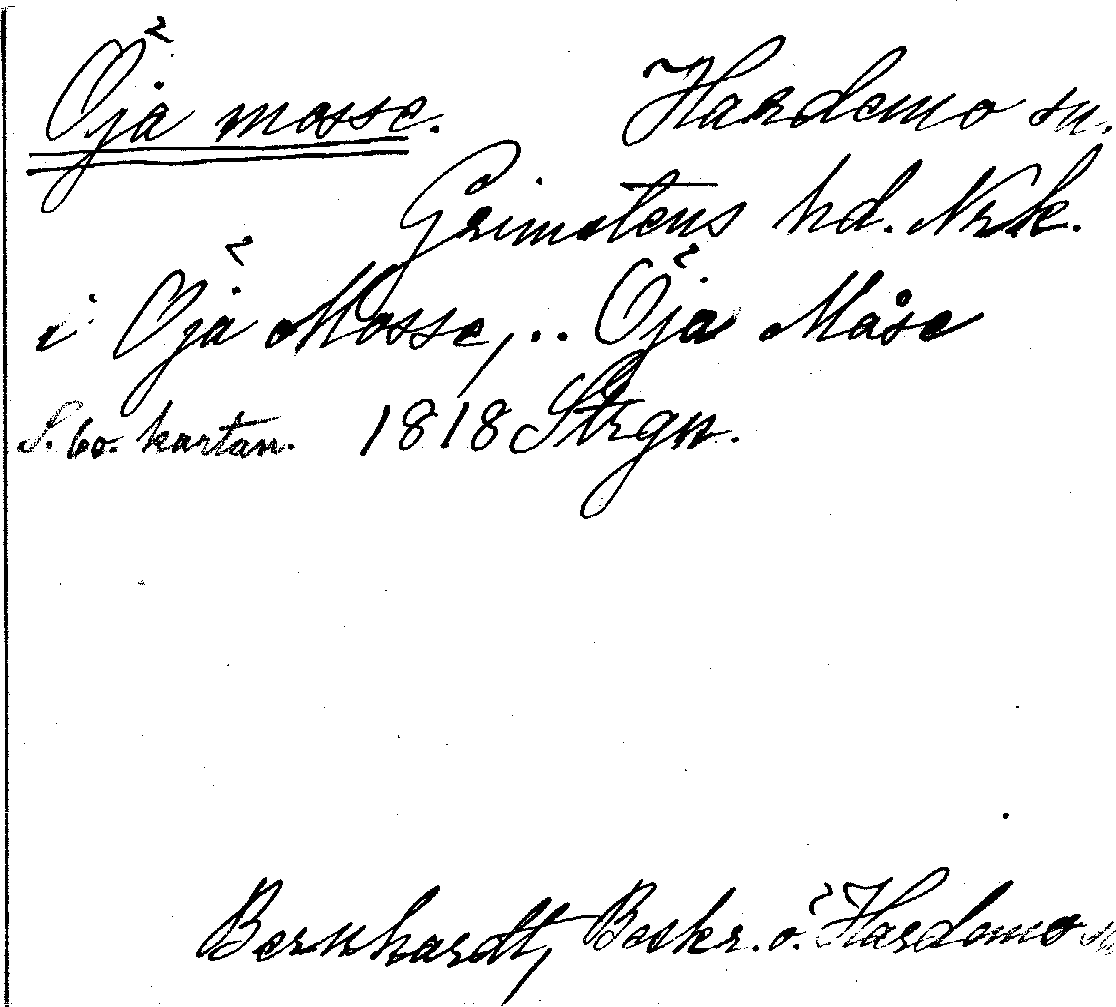 Öja mosse. Hardemo sn.
Grimstens hd. Nrk.
i Öja Mosse, .. Öja Måse
S. 60. kartan. 1818 Strgn.
Bernhardt, Beskr. ö. Hardemo sn